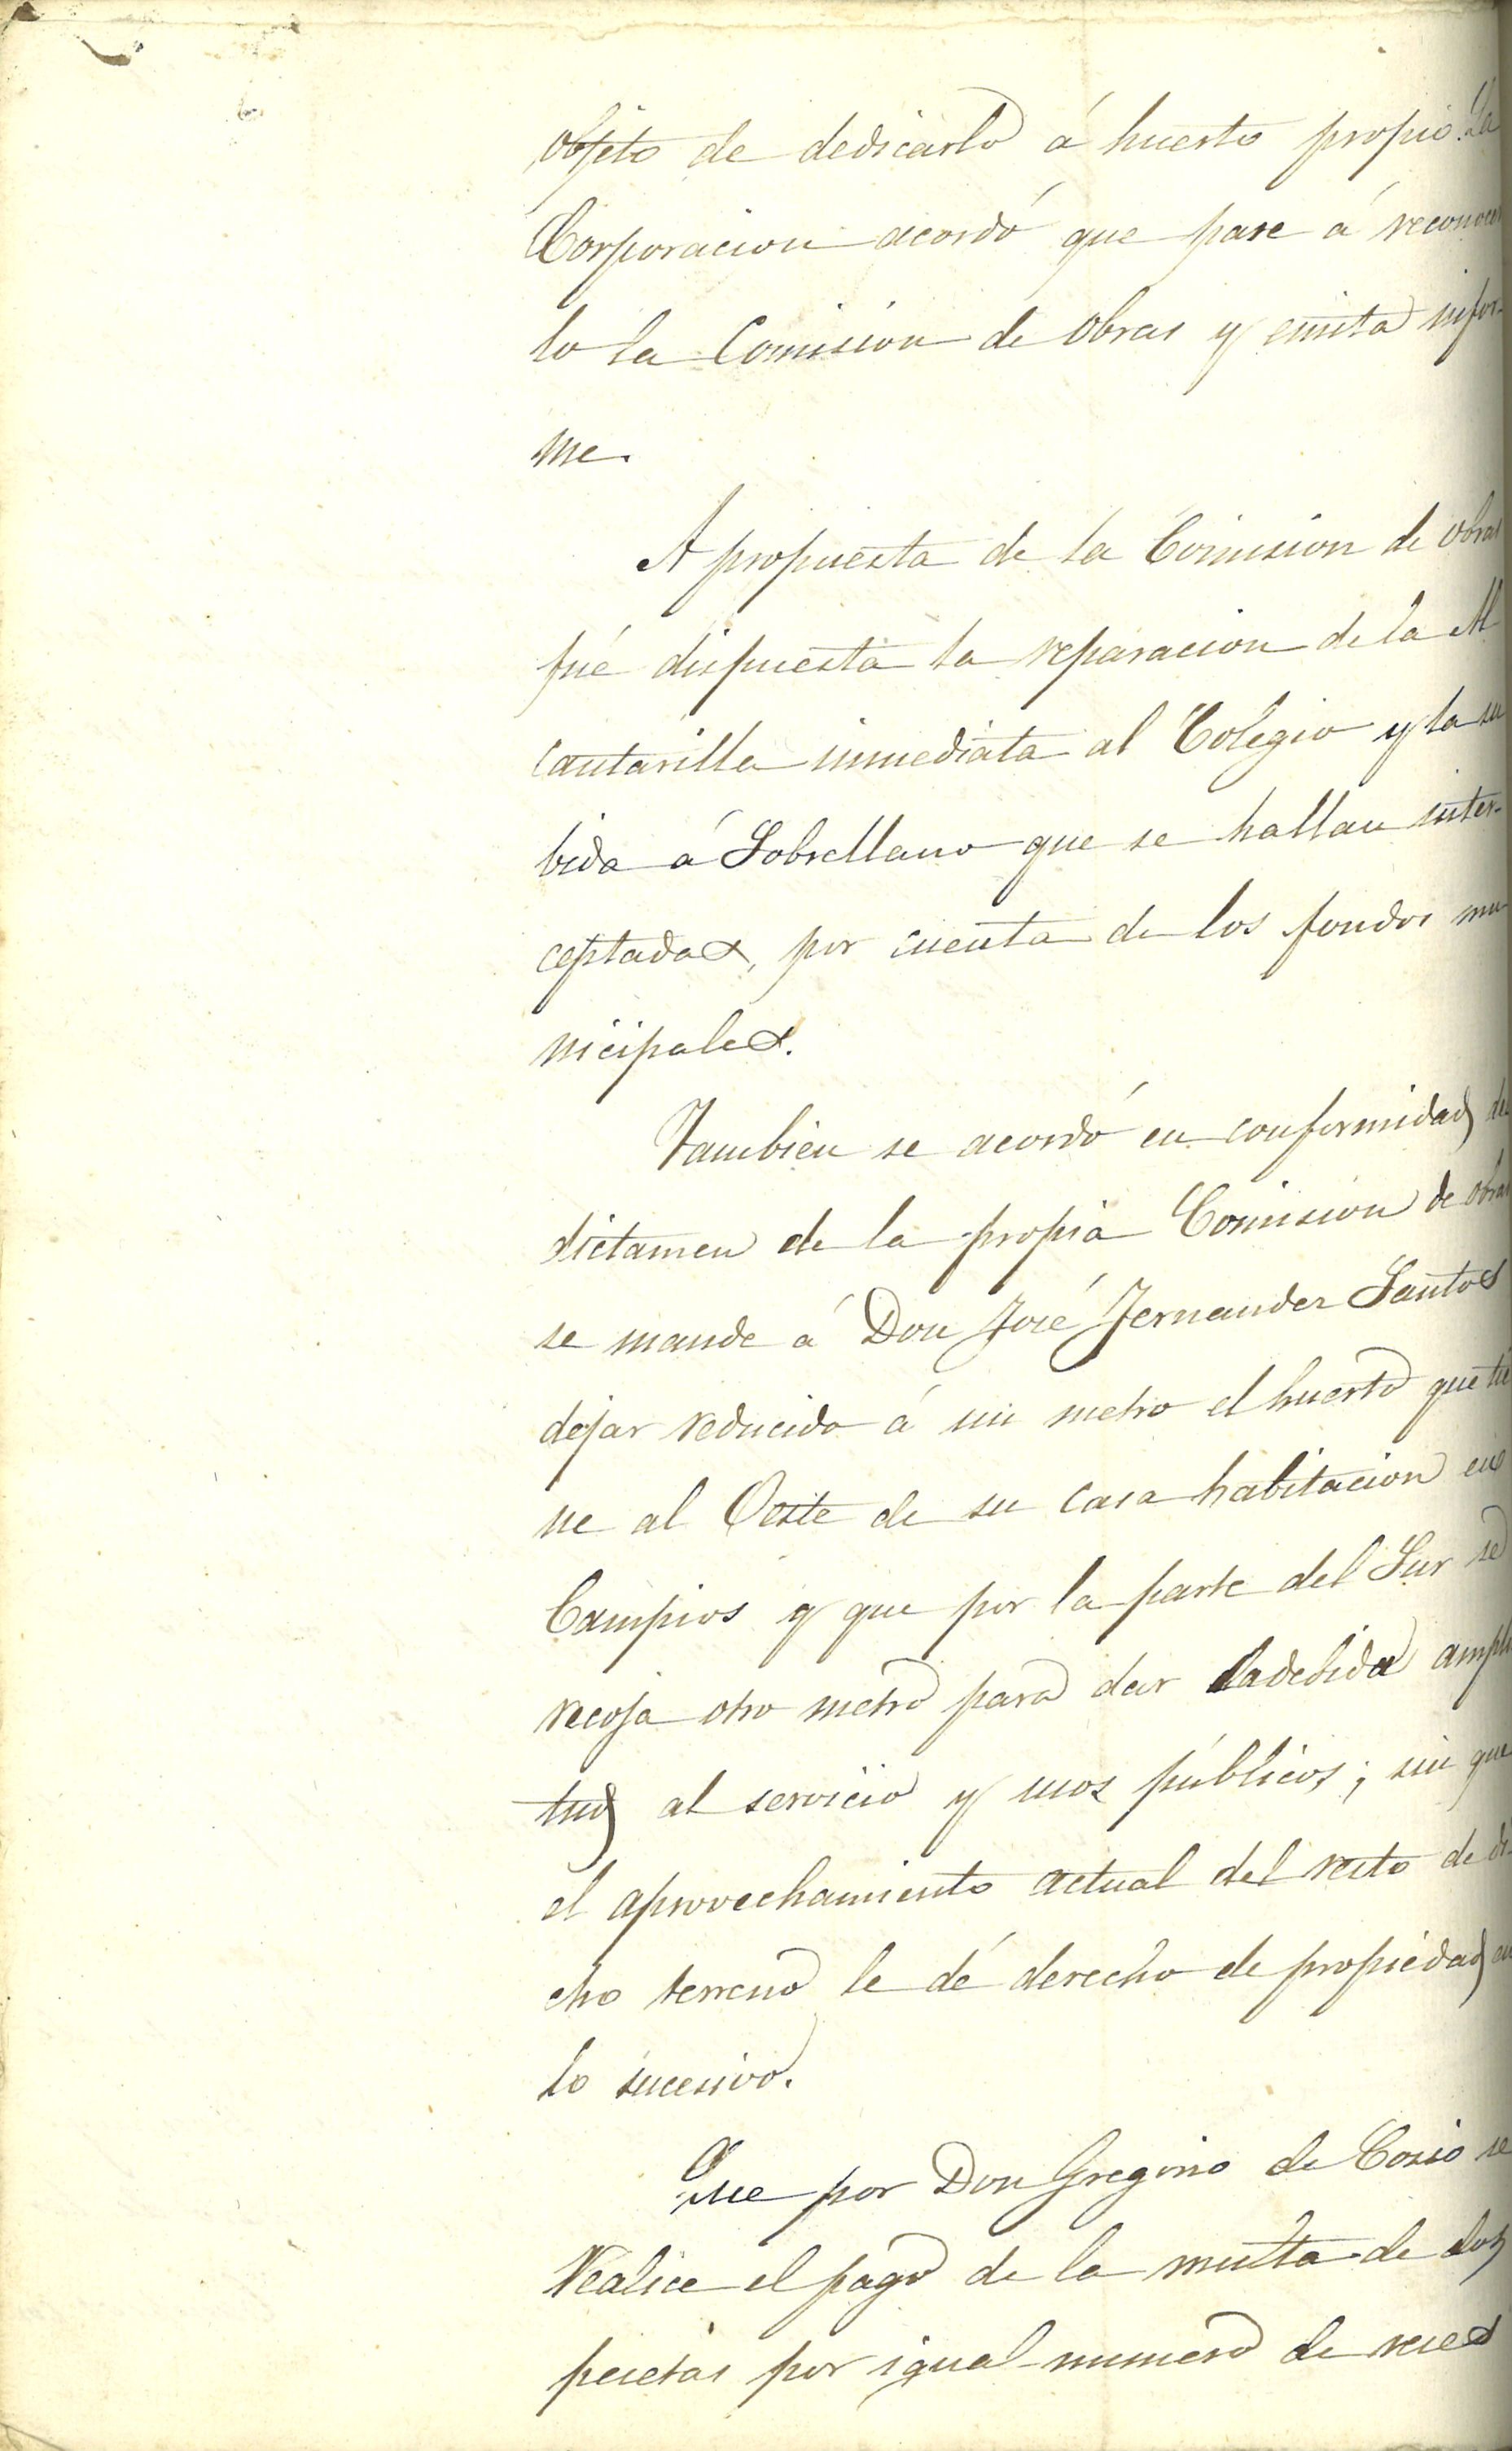 objeto de dedicarlo á huerto propio. La
Corporacion acordó que pase á reconocer
lo la Comision de Obras y emita infor-
me.
A propuesta de la Comision de obras
fué dispuesta la reparacion de la Al
cantarilla inmediata al Colegio y la su
bida á Sobrellano que se hallan inter-
ceptadas, por cuenta de los fondos mu
nicipales.
Tambien se acordó en conformidad del
dictamen de la propia Comision de obras
se mande á Don José Fernandez Santos
dejar reducido á un metro el huerto que tie
ne al Oeste de su casa habitacion en
Campios y que por la parte del Sur se
recoja otro metro para dar la debida ampli
tud al servicio y usos públicos; sin que
el aprovechamiento actual del resto de di-
cho terreno le dé derecho de propiedad en
lo sucesivo.
Que por Don Gregorio de Cosio se
realice el pago de la multa de dos
pesetas por igual numero de reses